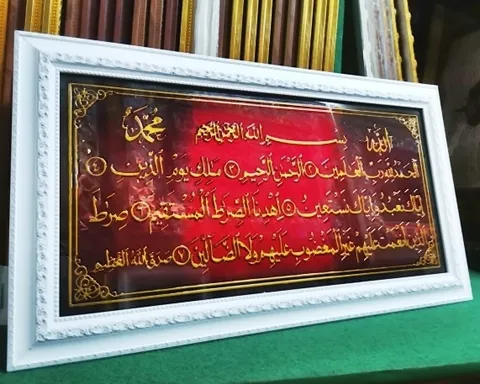 الله بسم الله الرحمن الرحيم محمد
الحمد لله رب العلمين ١ الرحمن الرحيم ٢ ملك يوم الدين ٤
إياك نعبد وإياك نستعين ٥ اهدنا الصرط المستقيم ٦ صرط
الذين أنعمت عليهم غير المغضوب عليهم ولا الضالين ٧ صدق الله العظيم